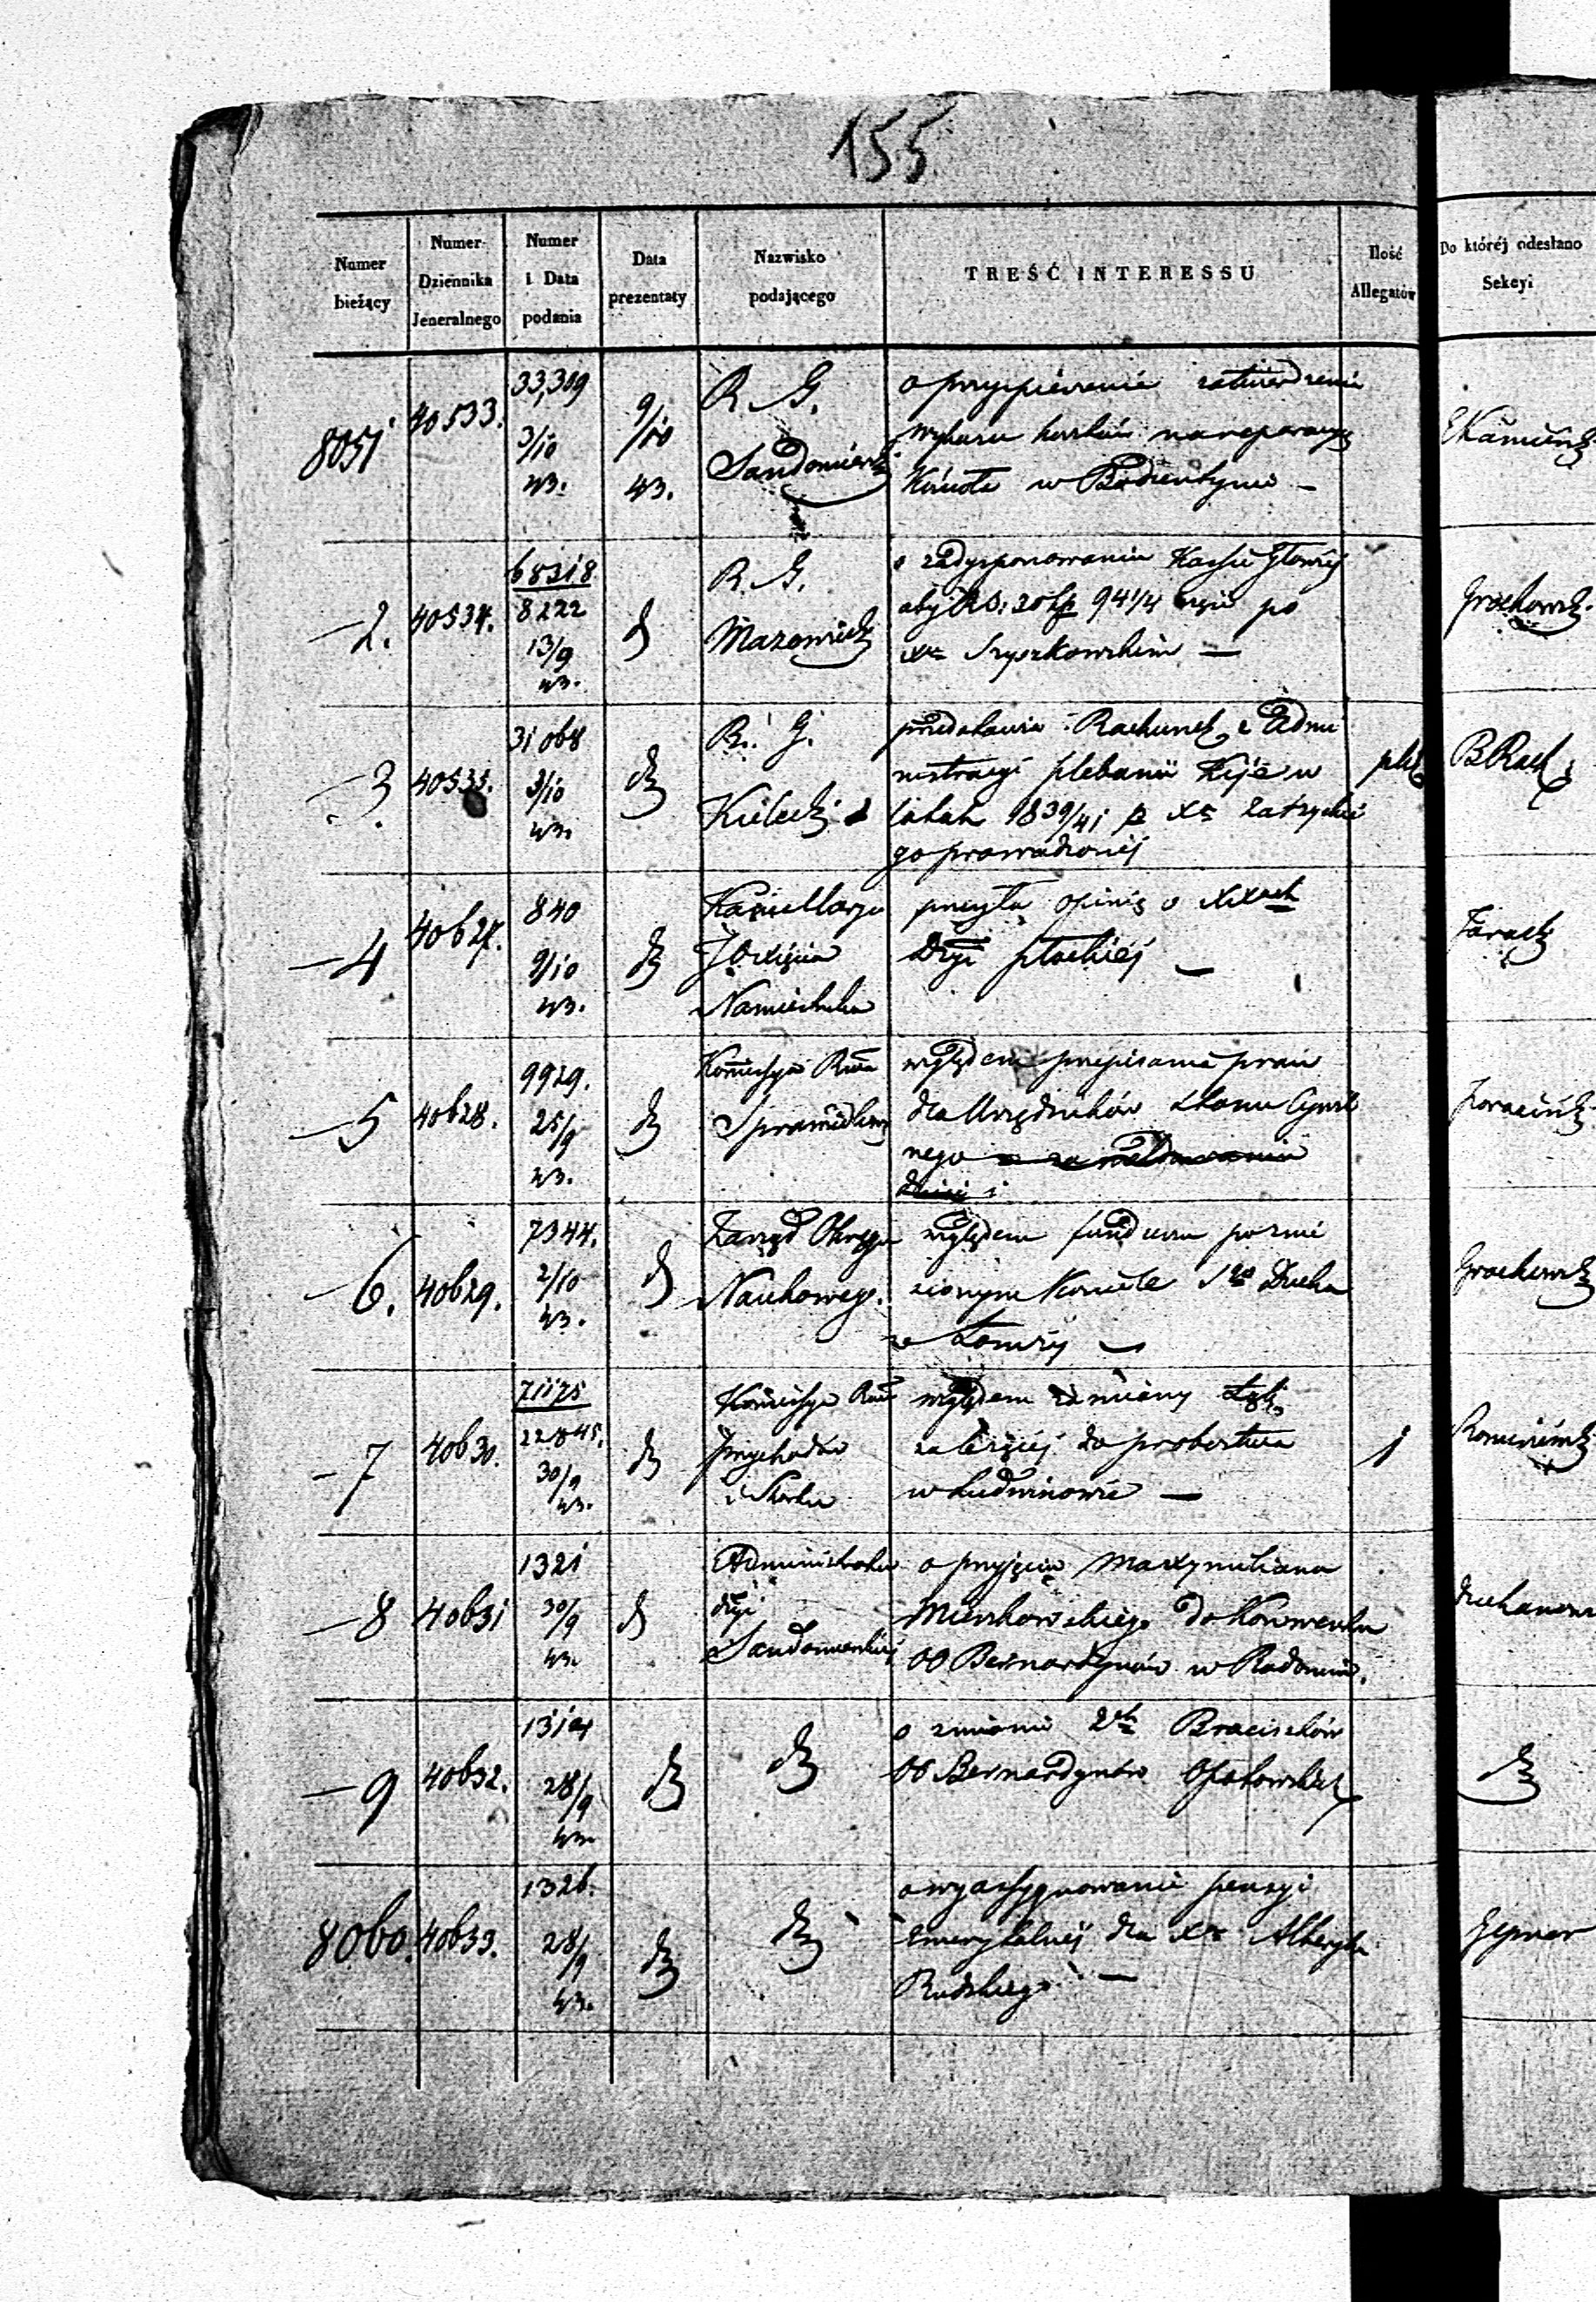 155
Numer bieżący
Numer Dziennika Jeneralnego
Numer i Data podania
Data prezentaty
Nazwisko podającego
TREŚĆ INTERESSU
Ilość Allegatów
Do któréj odesłano Sekcyi
8051 40533. 33,309 3/10 43. 9/10 43. R. G. Sandomierski
o przyspieszenie zatwierdzenia
wykazu kosztów na reparacyę
Kościoła w Bodzentynie –
—2. 40534. 68318 8222 13/9 43. R. G. Mazowiecki
o zadysponowanie Kassie Głównéj
aby RS. 30 k 94 1/4 po
Xdzu Szyszkowskim —
Grochowsk.
—3 40535. 31068 3/10 43. R. G. Kielecki
przedstawia Rachunek z Admi
nistracyi plebanii Kije w
latach 1839/41 p Xa
go prowadzonéj
plik
B Rach
—4 40627. 840 9/10 43. Kancellarya JO Xięcia Namiestnika
przesyła opinię o XXach
Dyi płockiéj —
—5 40628. 9929. 25/9 43. Komissya Rwa Sprawiedliw
względem przepisania praw
dla Urzędników Stanu Cywil
nego
—6. 40629. 7344. 2/10 43. Zarząd Okręgu Naukowego.
względem funduszu po
Kościele Sgo Ducha
w Łomży —
Grochowsk
—7 40630. 71175 22845. 30/9 43. Komissya Rwa Przychodów i Skarbu
względem zamiany Łąki
należącéj do probostwa
w Ludwinowie —
1
—8 40631 1321 30/9 43. Administrator dyi Sandomierskiéj
o przyjęcie Maxymiliana
Mienkowskiego do Konwentu
OO Bernardynów w Radomiu.
—9 40632. 1314 28/9 43.
o zmianie 2ch Braciszków
OO Bernardynów Opatowskich
8060. 40633. 1326. 28/9 43.
o wyassygnowanie pensyi
Emerytalnéj dla Xa Alberyka
Rudzkiego —